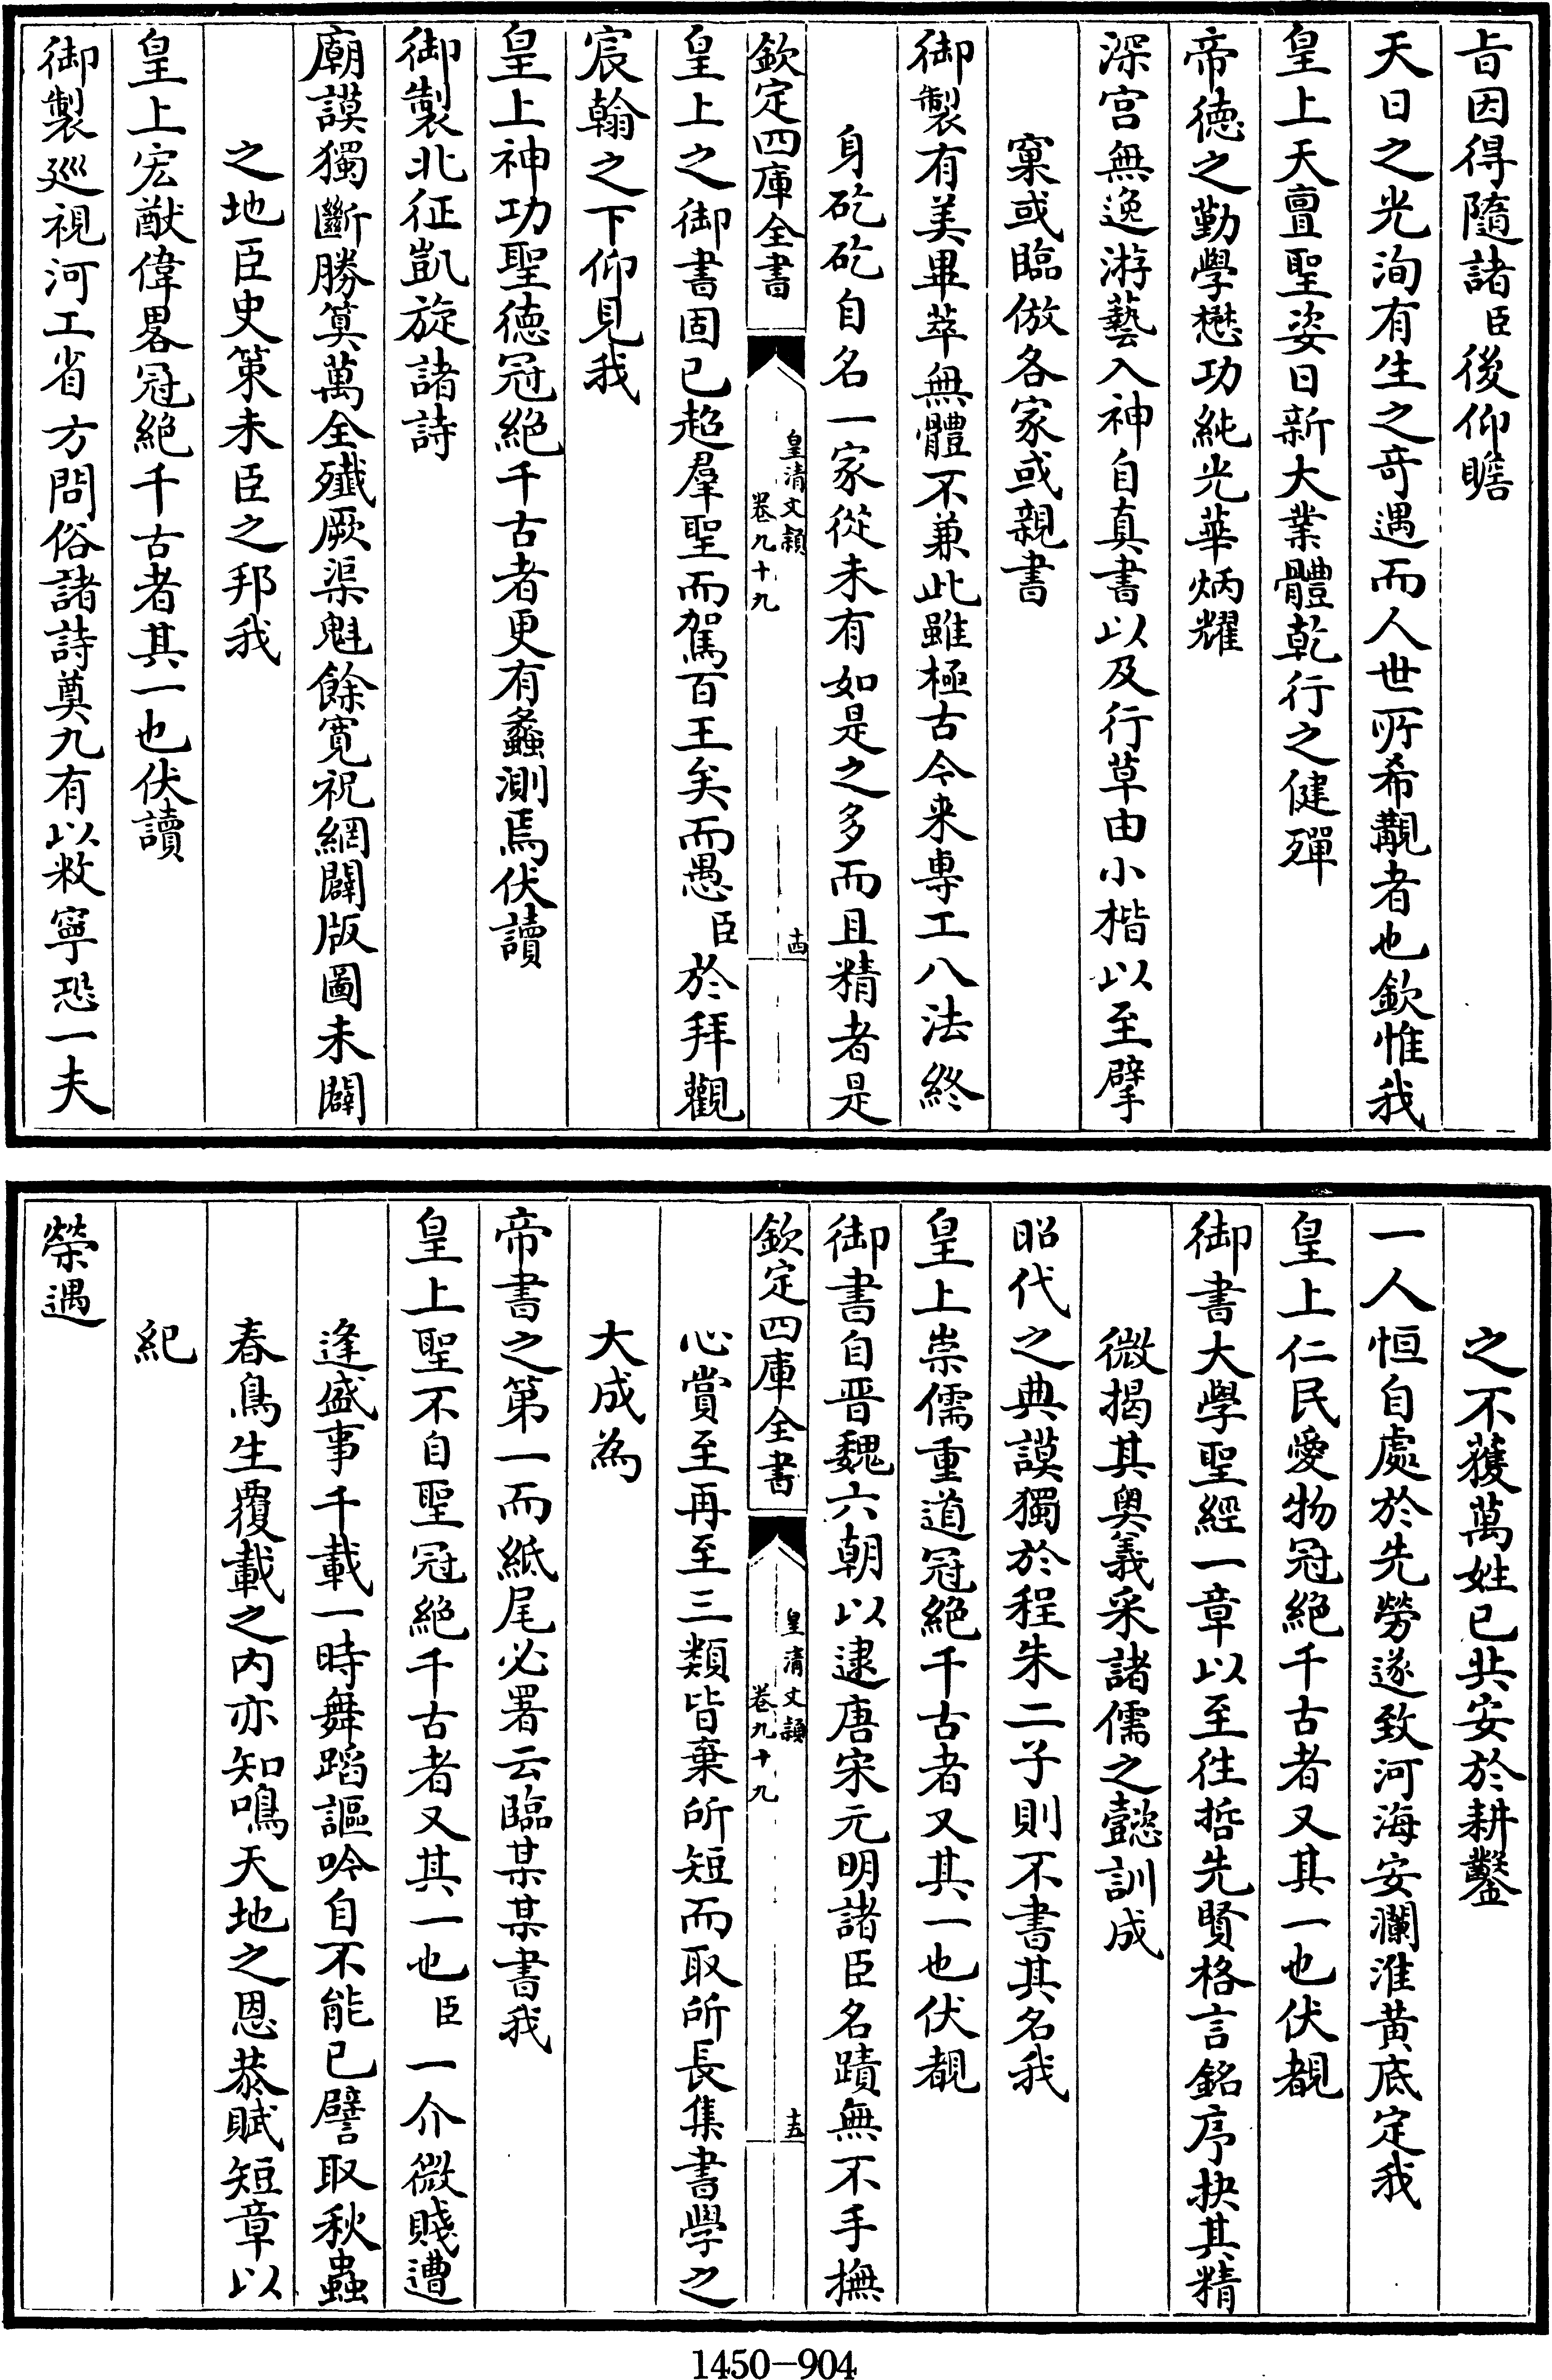 旨因得隨諸臣後仰瞻
天日之光洵有生之奇遇而人世所希覯者也欽惟我
皇上天亶聖姿日新大業體乾行之健殫
帝德之勤學懋功純光華炳耀
深宫無逸游藝入神自真書以及行草由小楷以至擘
窠或臨倣各家或親書
御製有美畢萃無體不兼此雖極古今来專工八法終
身矻矻自名一家從未有如是之多而且精者是
欽定四庫全書
皇清文穎
卷九十九
十四
皇上之御書固已超羣聖而駕百王矣而愚臣於拜觀
宸翰之下仰見我
皇上神功聖德冠絶千古者更有蠡測焉伏讀
御製北征凱旋諸詩
廟謨獨斷勝筭萬全殲厥渠魁餘寛祝網闢版圖未闢
之地臣史策未臣之邦我
皇上宏猷偉畧冠絶千古者其一也伏讀
御製廵視河工省方問俗諸詩奠九有以敉寧恐一夫
之不獲萬姓已共安於耕鑿
一人恒自處於先勞遂致河海安瀾淮黄底定我
皇上仁民愛物冠絶千古者又其一也伏覩
御書大學聖經一章以至徃哲先賢格言銘序抉其精
微揭其奥義采諸儒之懿訓成
昭代之典謨獨於程朱二子則不書其名我
皇上崇儒重道冠絶千古者又其一也伏覩
御書自晋魏六朝以逮唐宋元明諸臣名蹟無不手撫
欽定四庫全書
皇清文穎
卷九十九
十五
心賞至再至三類皆棄所短而取所長集書學之
大成為
帝書之第一而紙尾必署云臨某某書我
皇上聖不自聖冠絶千古者又其一也臣一介微賤遭
逢盛事千載一時舞蹈謳吟自不能已譬取秋蟲
春鳥生覆載之内亦知鳴天地之恩恭賦短章以
紀
榮遇
1450-904